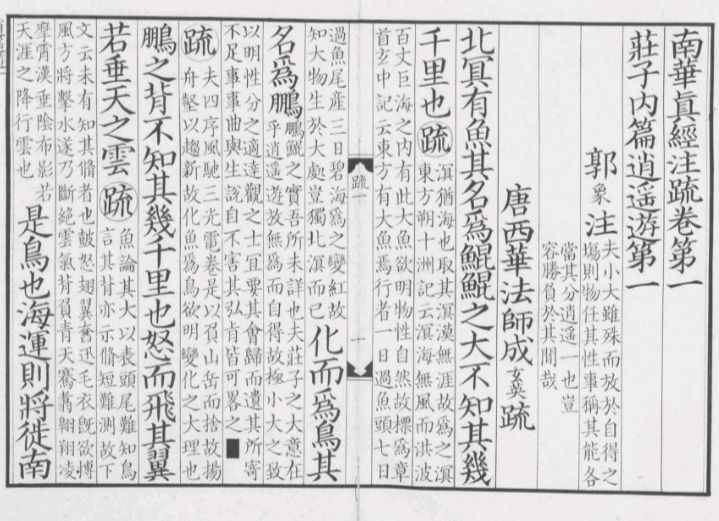 南華眞經注疏卷第一
莊子内篇逍遥遊第一
郭象注
夫小大雖殊而放於自得之
塲則物任其性事稱其能各
當其分逍遥一也豈
容勝負於其間哉
唐西華法師成玄英疏
北冥有魚其名爲鯤鯤之大不知其幾
千里也疏
溟猶海也取其溟漠無涯故爲之溟
東方朔十洲記云溟海無風而洪波
百丈巨海之内有此大魚欲明物性自然故摽爲章
首玄中記云東方有大魚焉行者一日過魚頭七日
疏一
一
過魚尾産三日碧海爲之變紅故
知大物生於大處豈獨北溟而已
化而爲鳥其
名爲鵬
鵬鯤之實吾所未詳也夫莊子之大意在
乎逍遥遊放無爲而自得故極小大之致
以明性分之適達觀之士宜要其會歸而遺其所寄
不足事事曲與生說自不害其弘旨皆可畧之
疏
夫四序風馳三光電卷是以負山岳而捨故揚
舟壑以趨新故化魚爲鳥欲明變化之大理也
鵬之背不知其幾千里也怒而飛其翼
若垂天之雲疏
魚論其大以表頭尾難知鳥
言其背亦示脩短難測故下
文云未有知其脩者也皷怒翅翼奮迅毛衣旣欲摶
風方將擊水遂乃斷絕雲氣背負青天鶱翥翱翔凌
摩霄漢垂陰布影若
天涯之降行雲也
是鳥也海運則將徙南